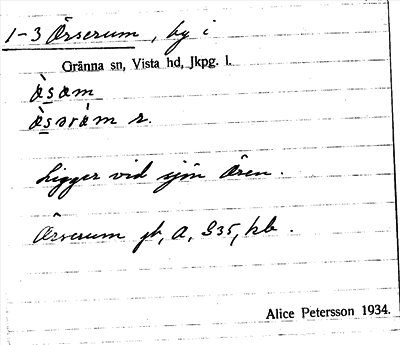 1-3 Örserum, by i
Gränna sn, Vista hd, Jkpg. l.
Ligger vid sjön Ören.
Örserum jb, A, G35, kb.
Alice Petersson 1934.